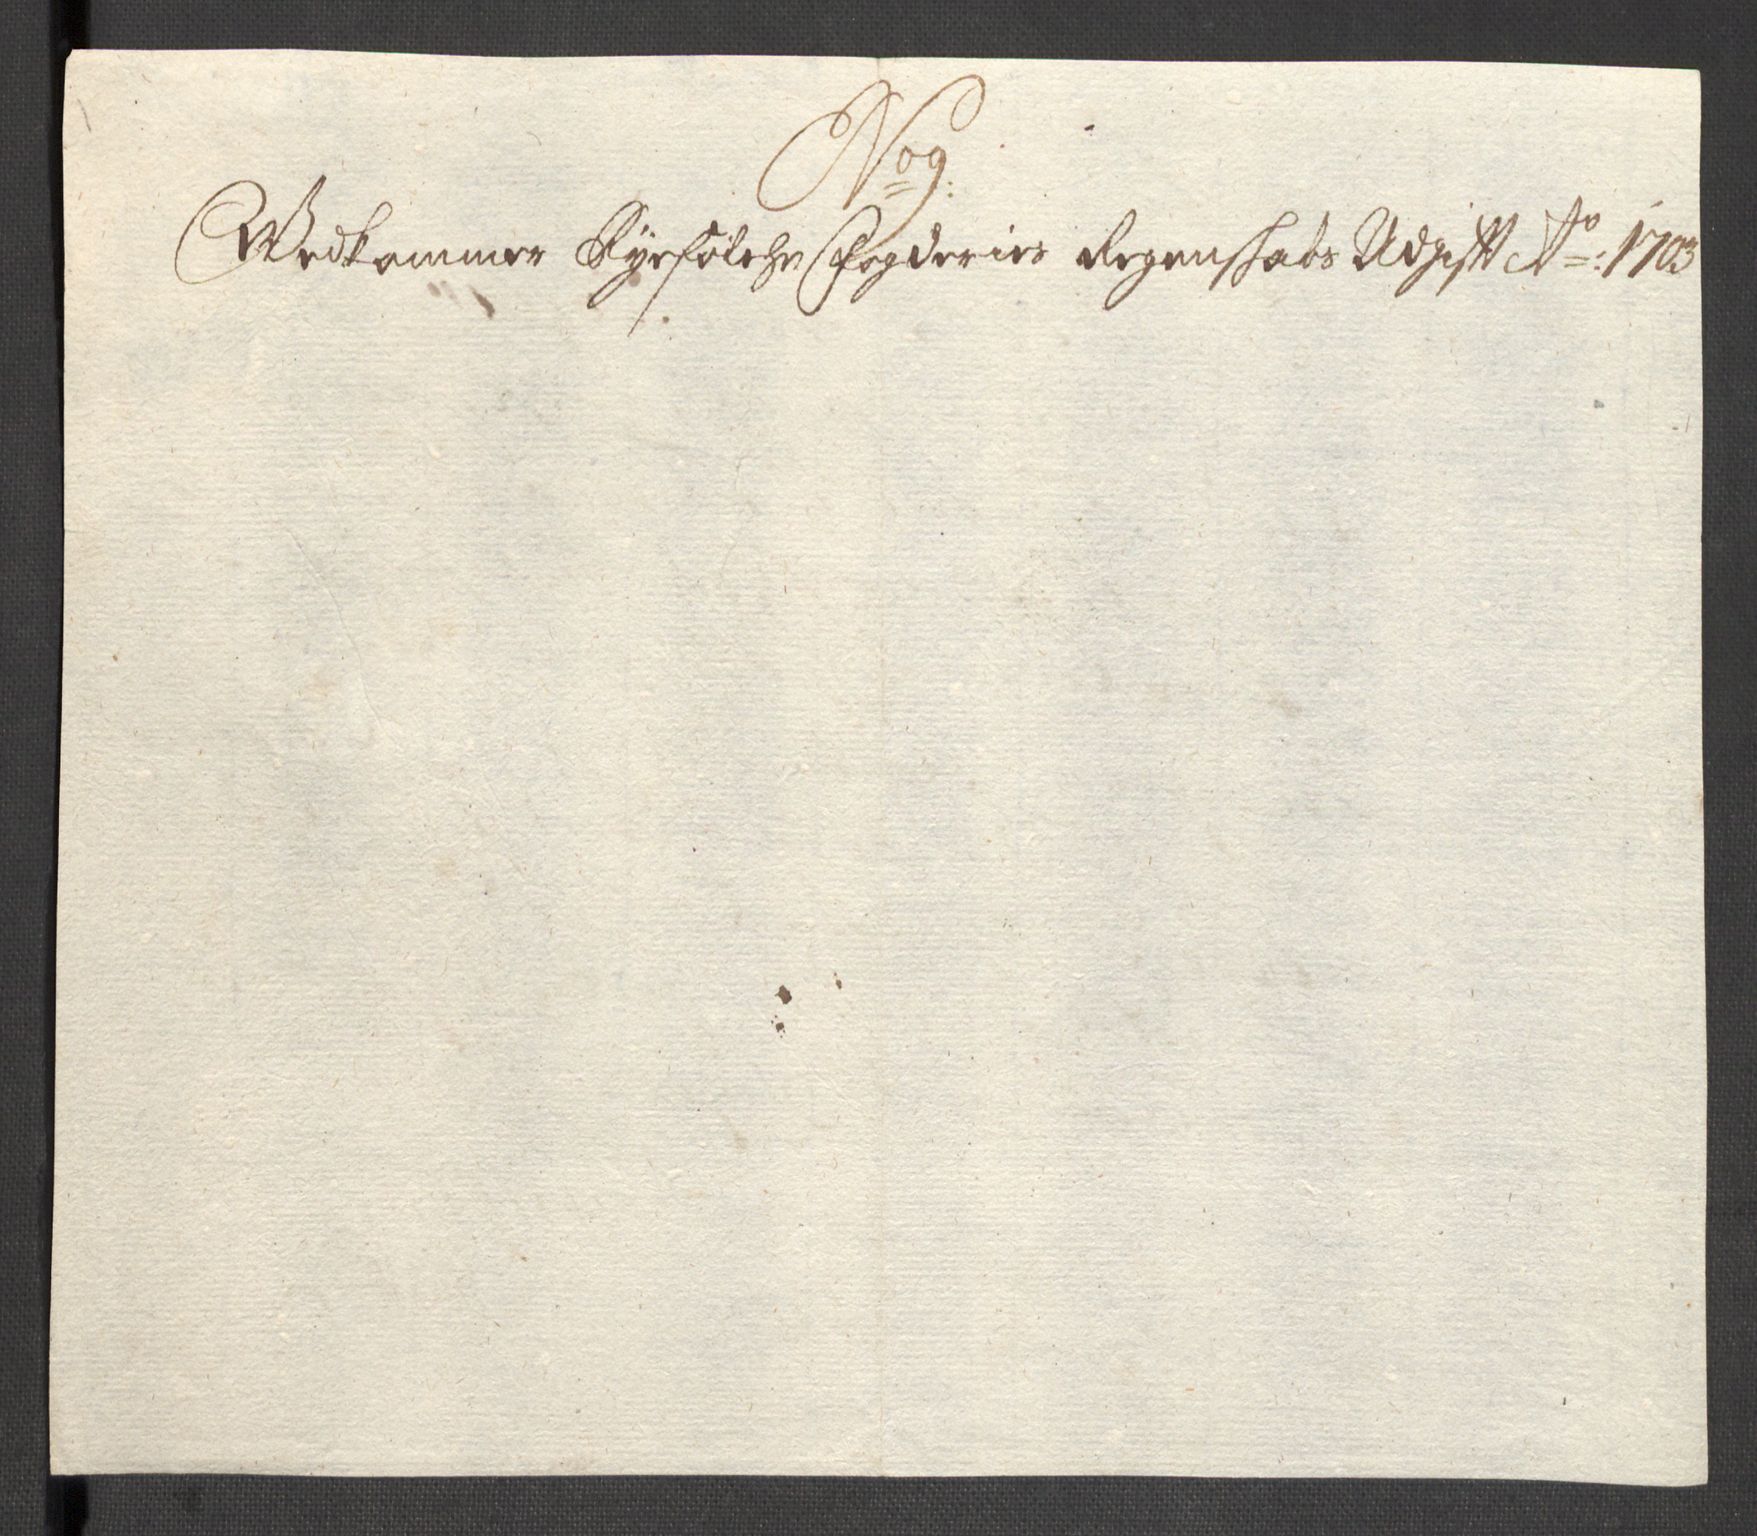 No 9:
Wedkommer Ryefölche Fogderies Regenskabs Udgifft Ao: 1703